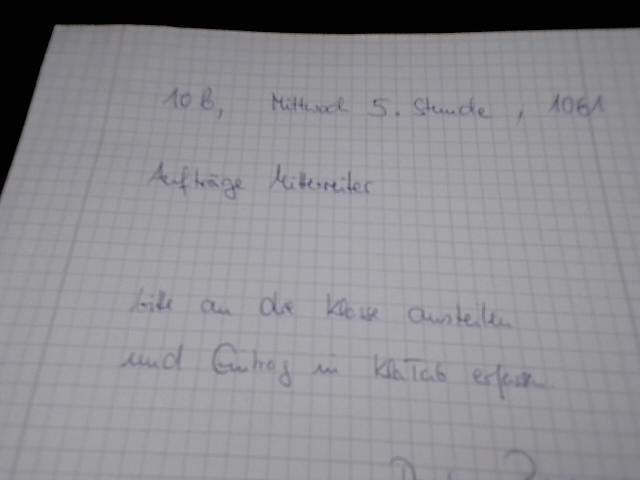 10b, Mittwoch 5. Stunde, 1061
Aufträge Mitterreiter
bitte an die Klasse austeilen
und Eintrag in KlaTab erfassen